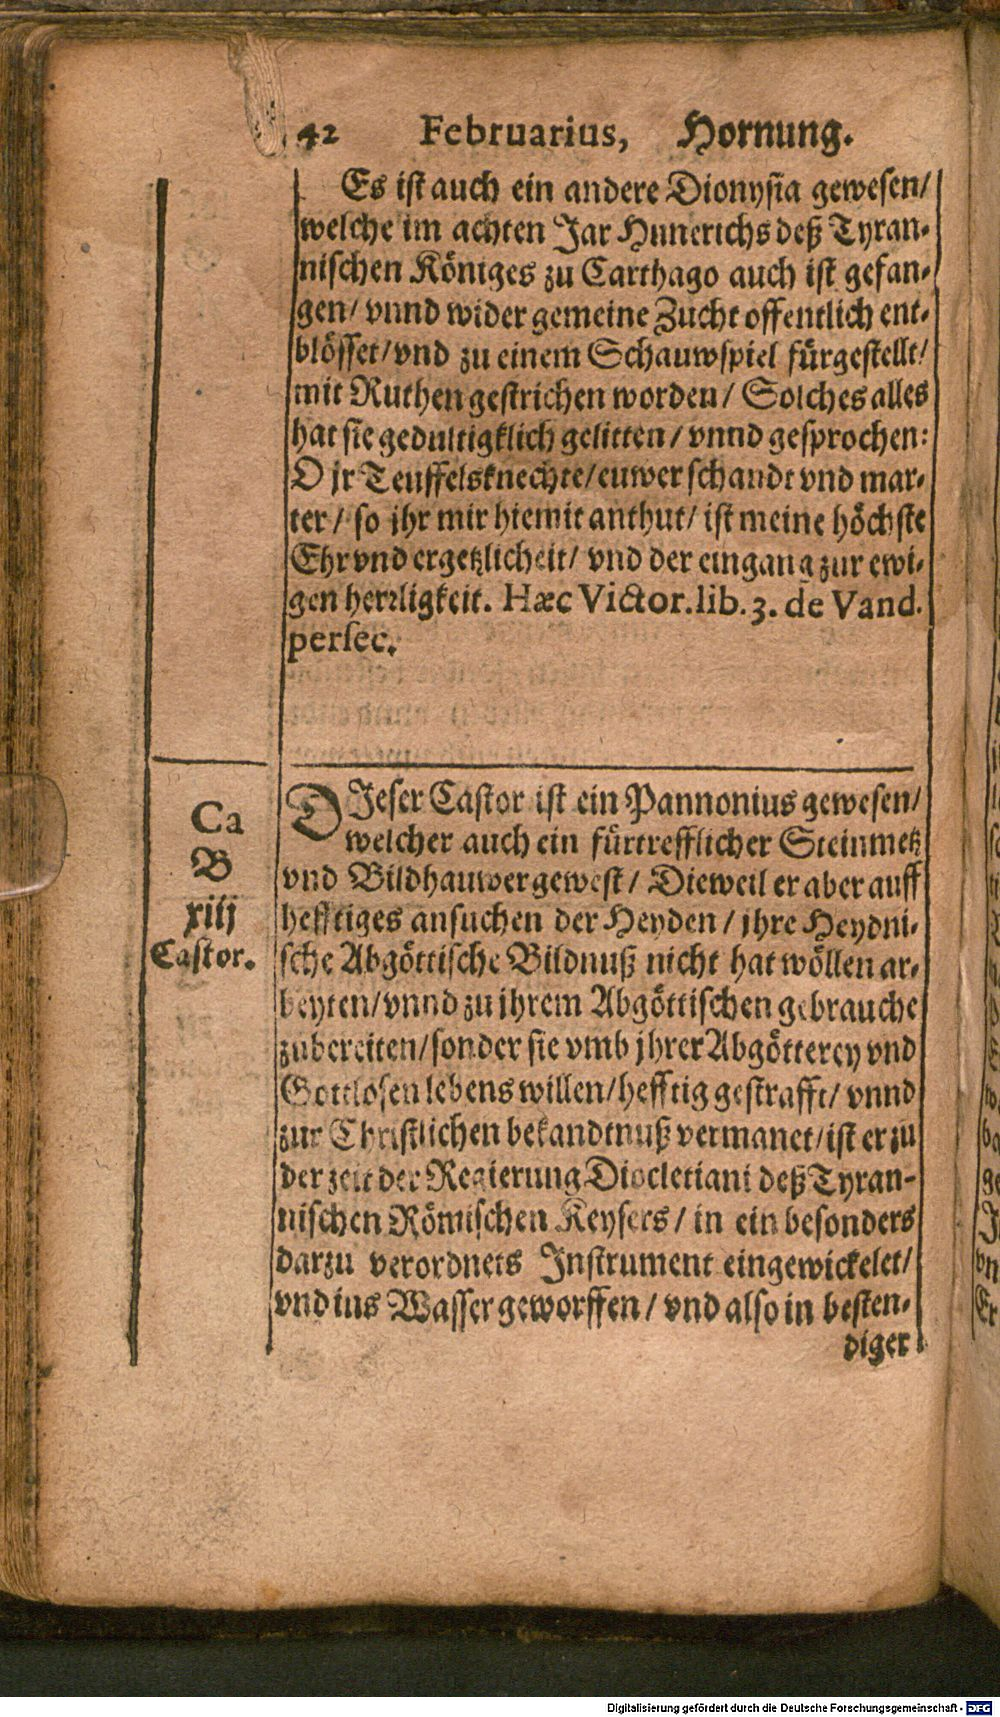 42 Februarius, Hornung.
Es ist auch ein andere Dionysia gewesen/
welche im achten Jar Hunerichs deß Tyran-
nischen Königes zu Carthago auch ist gefan-
gen/ vnnd wider gemeine Zucht offentlich ent-
blösset/ vnd zu einem Schauwspiel fürgestellt/
mit Ruthen gestrichen worden/ Solches alles
hat sie gedultigklich gelitten/ vnnd gesprochen:
O jr Teuffelsknechte/ euwer schandt vnd mar-
ter/ so jhr mir hiemit anthut/ ist meine höchste
Ehr vnd ergetzlicheit/ vnd der eingang zur ewi-
gen herrligkeit. Hæc Victor. lib. 3. de Vand.
persec.
Ca
B
xiij
Castor.
DJeser Castor ist ein Pannonius gewesen/
welcher auch ein fürtrefflicher Steinmetz
vnd Bildhauwer gewest/ Dieweil er aber auff
hefftiges ansuchen der Heyden/ jhre Heydni-
sche Abgöttische Bildnuß nicht hat wöllen ar-
beyten/ vnnd zu jhrem Abgöttischen gebrauche
zubereiten/ sonder sie vmb jhrer Abgötterey vnd
Gottlosen lebens willen/ hefftig gestrafft/ vnnd
zur Christlichen bekandtnuß vermanet/ ist er zu
der zeit der Regierung Diocletiani deß Tyran-
nischen Römischen Keysers/ in ein besonders
darzu verordnets Instrument eingewickelet/
vnd ins Wasser geworffen/ vnd also in besten-
diger
Digitalisierung gefördert durch die Deutsche Forschungsgemeinschaft - DFG